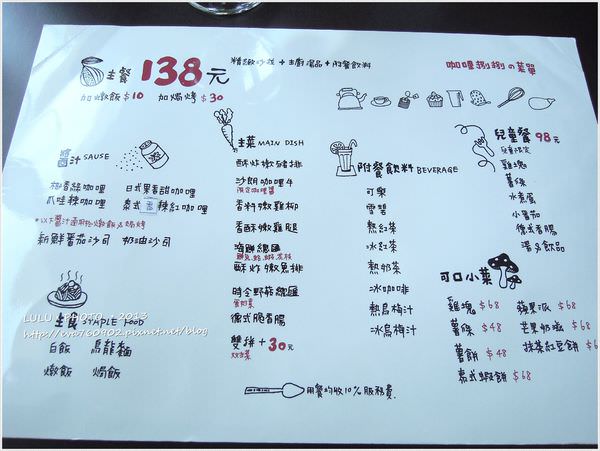 主餐 138元
精緻沙拉 + 主廚湯品 + 附餐飲料
咖哩捌捌の菜單
加燉飯 $10 加焗烤 $30
醬汁 SAUSE
椰香綠咖哩 日式果香甜咖哩
爪哇辣咖哩 泰式 辣紅咖哩
新鮮番茄沙司 奶油沙司
主食 STAPLE FOOD
白飯 烏龍麵
燉飯 焗飯
主菜 MAIN DISH
酥炸嫩豬排
沙朗咖哩牛
限定咖哩醬
香料嫩雞柳
香酥嫩雞腿
海鮮總匯
酥炸嫩魚排
時令野菇總匯
德式脆香腸
雙拼 + 30元
附餐飲料 BEVERAGE
可樂
雪碧
熱紅茶
冰紅茶
熱奶茶
冰咖啡
熱烏梅汁
冰烏梅汁
兒童餐 98元
雞塊
薯條
水煮蛋
小番茄
德式香腸
湯及飲品
可口小菜
雞塊 $68 蘋果派 $68
薯條 $48 芒果奶酪 $68
薯餅 $48 抹茶紅豆餅 $68
泰式蝦餅 $68
用餐均收10%服務費.
LULU . PHOTO . 2013
http://eva760902.pixnet.net/blog